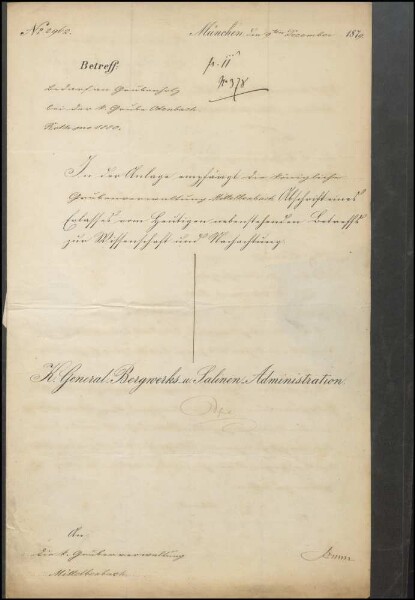 No 2962.
München, den 9ten Dezember 1879
Betreff.
pr. 11
No 378
Bedarf an Grubenholz
bei der k. Grube
pro 1880.
In der Anlage empfängt die königliche
Grubenverwaltung Mittelbexbach Abschrift eines
Erlasses vom Heutigen nebenstehenden Betreffs
zur Wissenschaft und Nachachtung.
K. General-Bergwerks- u. Salinen-Administration.
An
die k. Grubenverwaltung
Mittelbexbach